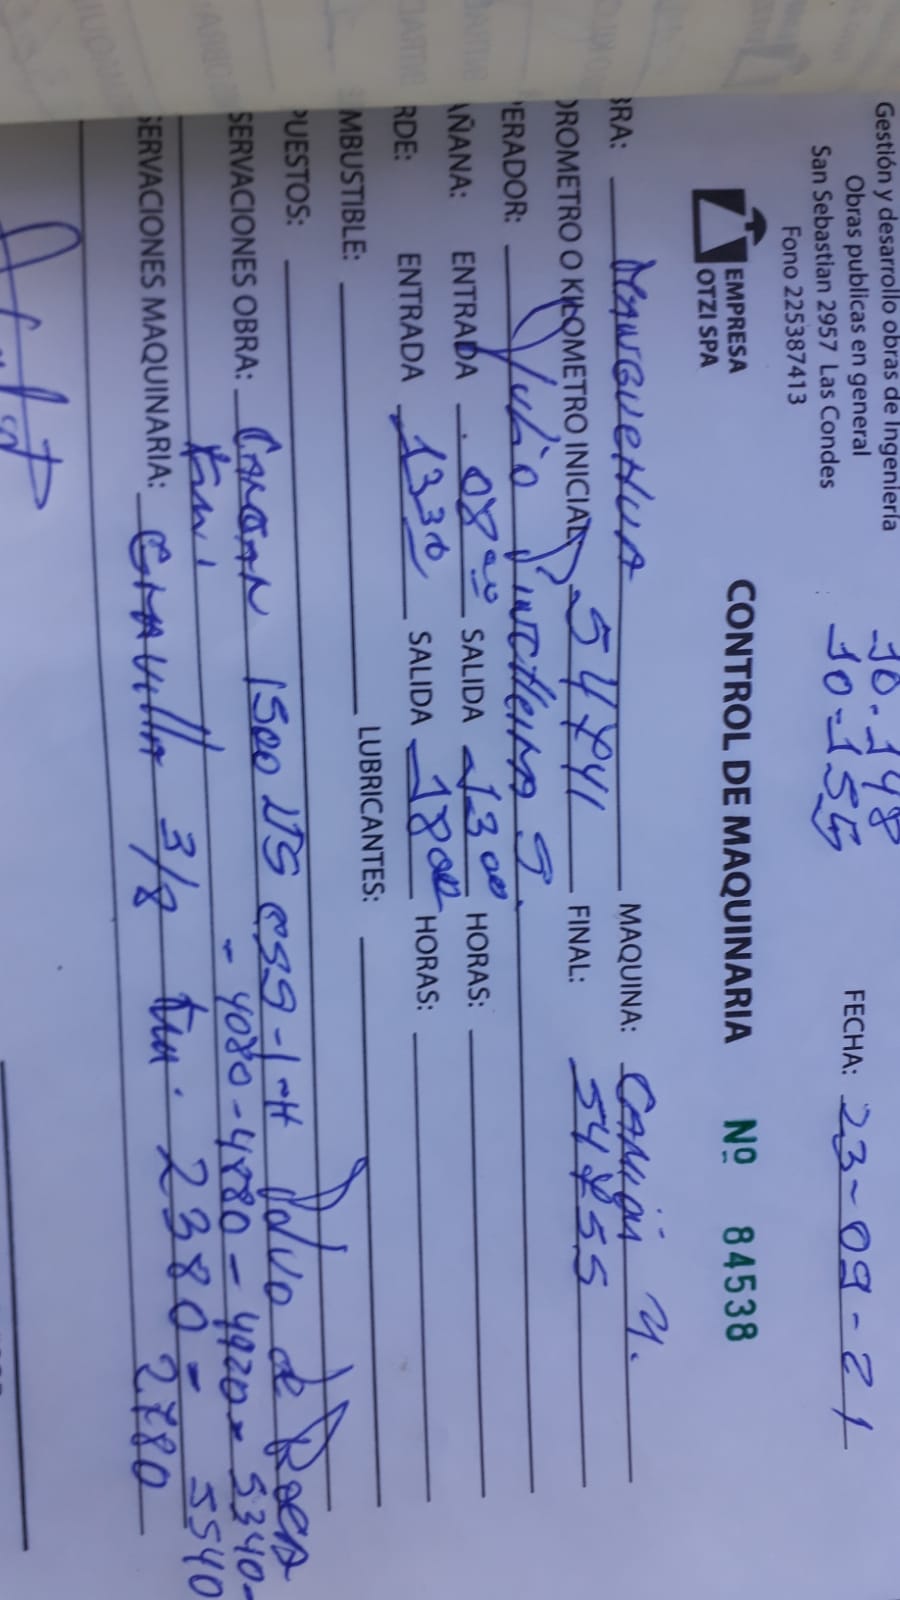 Gestión y desarrollo obras de Ingeniería
Obras publicas en general
San Sebastian 2957 Las Condes
Fono 225387413
10.148
10-155
FECHA: 23-09-21
EMPRESA
OTZI SPA
CONTROL DE MAQUINARIA Nº 84538
BRA: MANGUEHUA MAQUINA: CAMION
OROMETRO O KILOMETRO INICIAL 54741 FINAL: 54755
ERADOR: Julio S.
AÑANA: ENTRADA 08 00 SALIDA 13 00 HORAS:
RDE: ENTRADA 13 30 SALIDA 18 00 HORAS:
MBUSTIBLE: LUBRICANTES:
PUESTOS:
SERVACIONES OBRA: 1500 LTS CSS-1-H Polvo de Roca
- 4080-4880-4920- 5340-
5540
SERVACIONES MAQUINARIA: GRAVILLA 3/8 2380-
2780